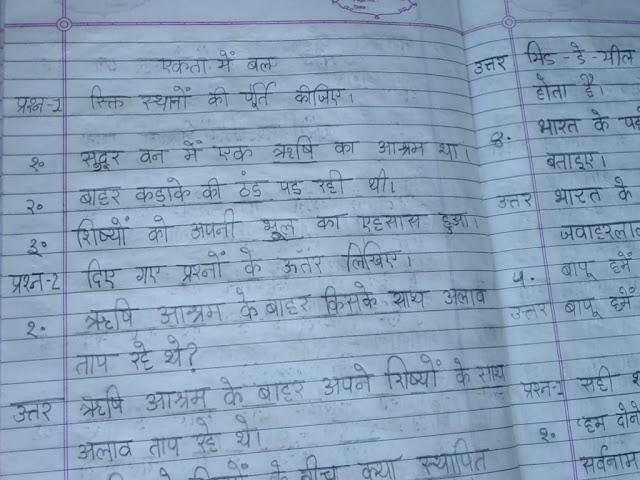 एकता में बल
प्रश्न-1 रिक्त स्थानों की पूर्ति कीजिए।
१. सुदूर वन में एक ऋषि का आश्रम था।
२. बाहर कड़ाके की ठंड पड़ रही थी।
३. शिष्यों को अपनी भूल का एहसास हुआ।
प्रश्न-2 दिए गए प्रश्नों के उत्तर लिखिए।
१. ऋषि आश्रम के बाहर किसके साथ अलाव
ताप रहे थे?
उत्तर ऋषि आश्रम के बाहर अपने शिष्यों के साथ
अलाव ताप रहे थे।
के बीच क्या स्थापित
उत्तर मिड-डे-मील
होता है।
४. भारत के
बताइए।
उत्तर भारत के
जवाहरलाल
५. बापू हमें
उत्तर बापू हमें
प्रश्न-1 सही
१. हम दोनों
सर्वनाम